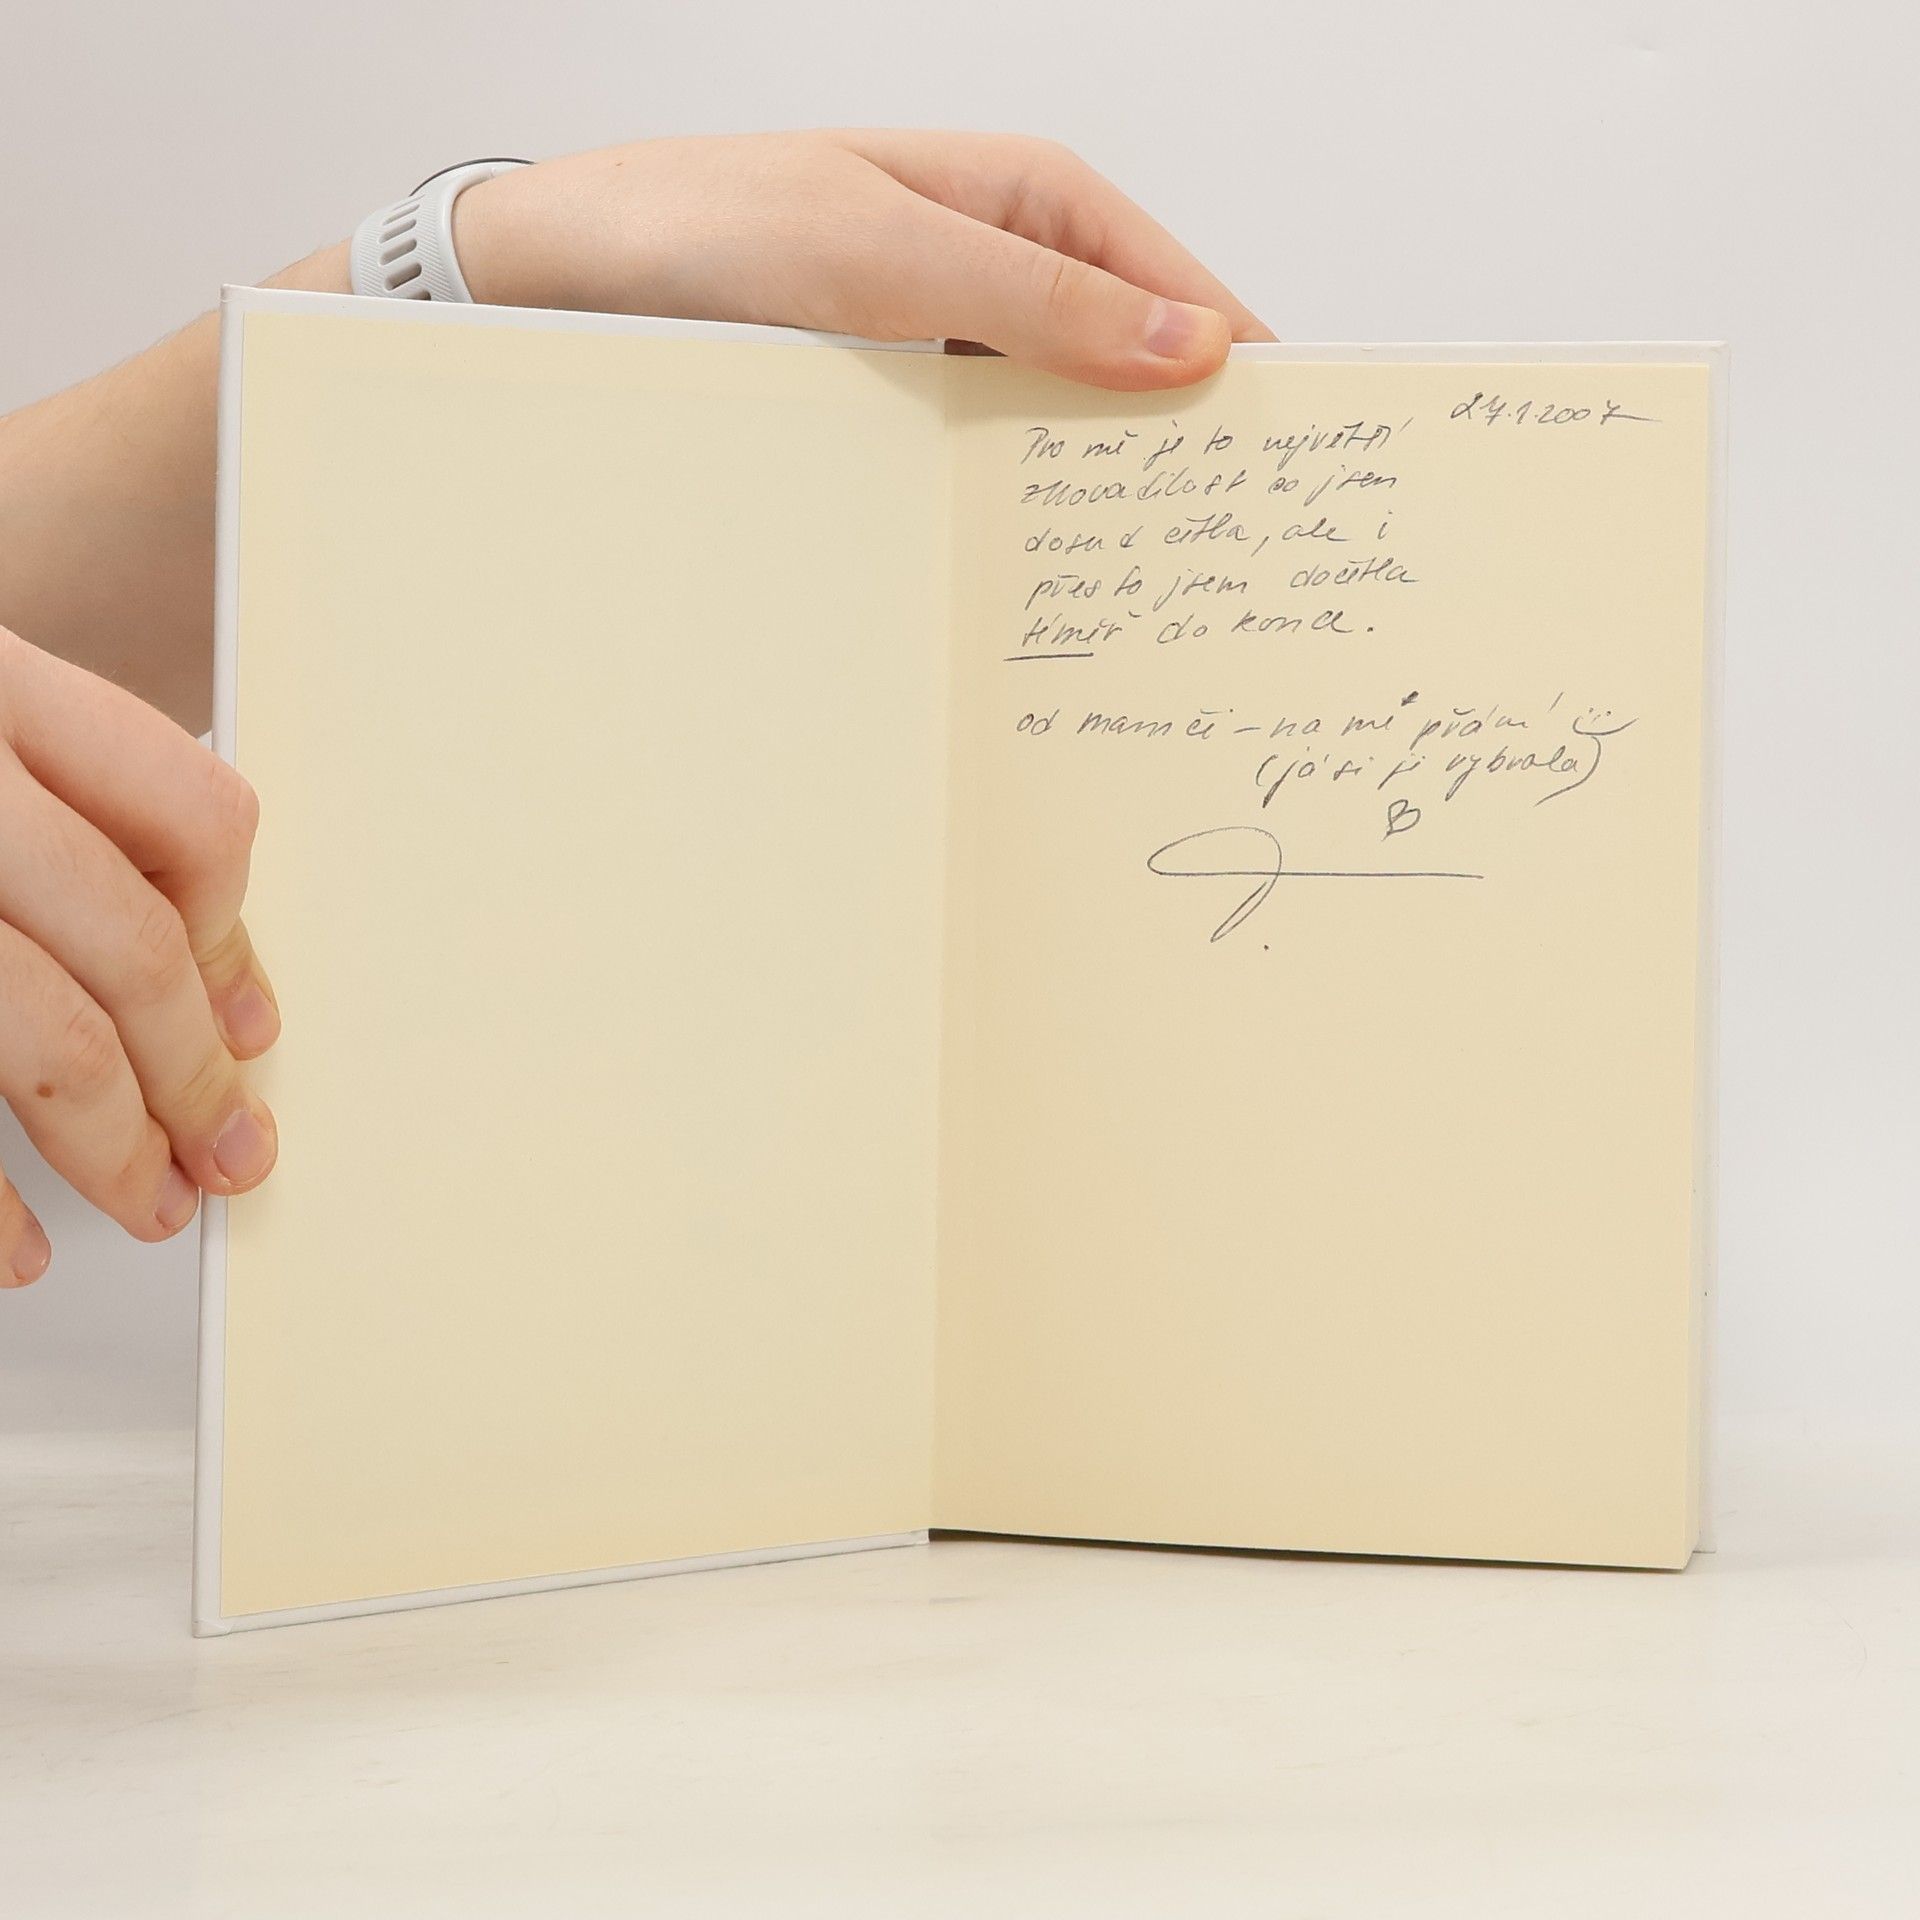 27.1.2007
Pro mě je to největší
zhovadilost co jsem
dosud četla, ale i
přesto jsem dočetla
téměř do konce.
od mamči – na mé přání
(já si ji vybrala)